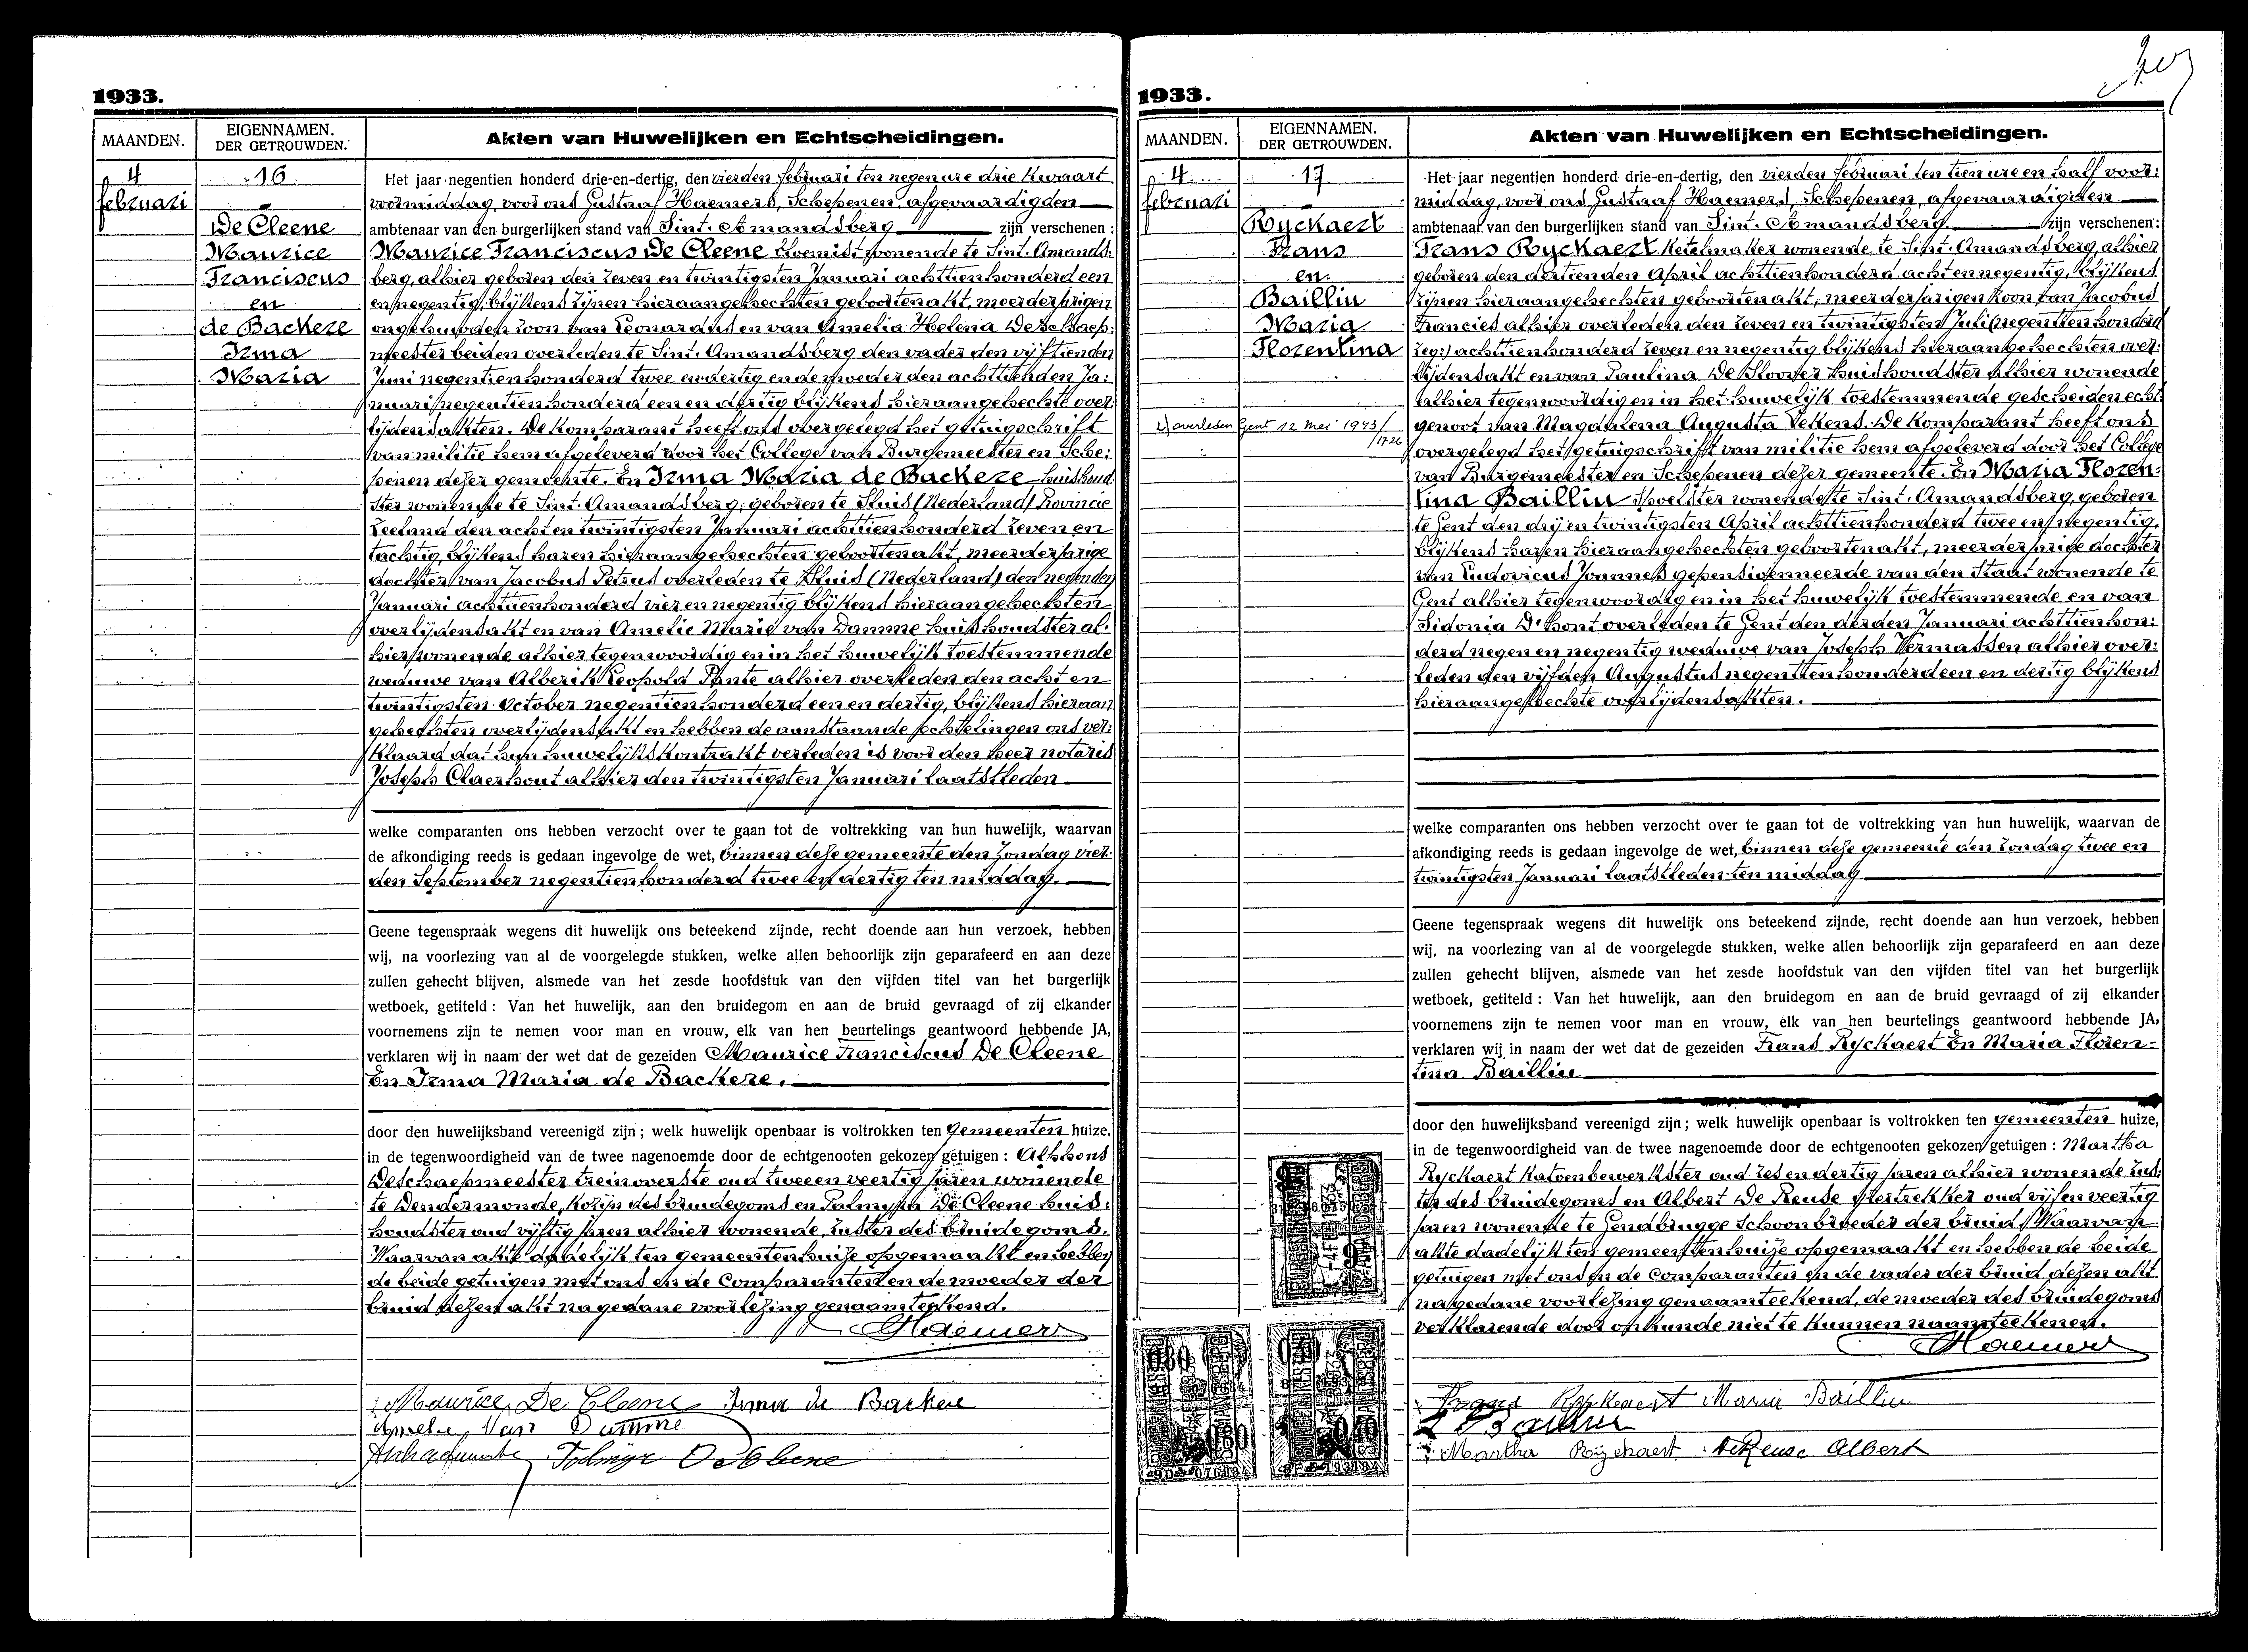 1933.
MAANDEN.
EIGENNAMEN.
DER GETROUWDEN.
Akten van Huwelijken en Echtscheidingen.
4
februari
16
De Cleene
Maurice
Franciscus
en
de Backere
Irma
Maria
Het jaar negentien honderd drie-en-dertig, den vierden februari ten negen ure drie kwaart
voormiddag, voor ons Gustaaf Haemers, Schepenen, afgevaardigden
ambtenaar van den burgerlijken stand van Sint-Amandsberg zijn verschenen:
Maurice Franciscus De Cleene wonende te Sint-Amands-
berg, alhier geboren den zeven en twintigsten Januari achttienhonderd een
en negentig, blijkens zijnen hieraangehechten geboortenakt, meerderjarigen
ongehuwden zoon van Leonardus en van Amelia Helena Deschaep-
meester beiden overleden te Sint-Amandsberg den vader den vijftienden
Juni negentienhonderd twee en dertig en de moeder den achttienden Ja-
nuari negentienhonderd een en dertig blijkens hieraangehechte over-
lijdensakten. De komparant heeft ons overgelegd het getuigschrift
van militie hem afgeleverd door het College van Burgemeester en Sche-
penen dezer gemeente. En Irma Maria de Backere huishoud-
ster wonende te Sint-Amandsberg, geboren te Sluis (Nederland) Provincie
Zeeland den acht en twintigsten Januari achttienhonderd zeven en
tachtig, blijkens haren hieraangehechten geboortenakt, meerderjarige
dochter van Jacobus Petrus overleden te Sluis (Nederland) den negenden
Januari achttienhonderd vier en negentig blijkens hieraangehechten
overlijdensakt en van Amelie Marie van Damme huishoudster al-
hier wonende alhier tegenwoordig en in het huwelijk toestemmende
weduwe van Alberik Leopold Pante alhier overleden den acht en
twintigsten October negentienhonderd een en dertig, blijkens hieraan
gehechten overlijdensakt en hebben de aanstaande echtelingen ons ver-
klaard dat hun huwelijkskontrakt verleden is voor den heer notaris
Joseph Claerhout alhier den twintigsten Januari laatstleden
welke comparanten ons hebben verzocht over te gaan tot de voltrekking van hun huwelijk, waarvan
de afkondiging reeds is gedaan ingevolge de wet, binnen deze gemeente den Zondag vier-
den September negentienhonderd twee en dertig ten middag.
Geene tegenspraak wegens dit huwelijk ons beteekend zijnde, recht doende aan hun verzoek, hebben
wij, na voorlezing van al de voorgelegde stukken, welke allen behoorlijk zijn geparafeerd en aan deze
zullen gehecht blijven, alsmede van het zesde hoofdstuk van den vijfden titel van het burgerlijk
wetboek, getiteld: Van het huwelijk, aan den bruidegom en aan de bruid gevraagd of zij elkander
voornemens zijn te nemen voor man en vrouw, elk van hen beurtelings geantwoord hebbende JA,
verklaren wij in naam der wet dat de gezeiden Maurice Franciscus De Cleene
En Irma Maria de Backere.
door den huwelijksband vereenigd zijn; welk huwelijk openbaar is voltrokken ten Gemeenten huize,
in de tegenwoordigheid van de twee nagenoemde door de echtgenooten gekozen getuigen: Alphons
Deschaepmeester treinoverste oud twee en veertig jaren wonende
te Dendermonde, kozijn des bruidegoms en Palmyra De Cleene huis-
houdster oud vijftig jaren alhier wonende, zuster des bruidegoms.
Waarvan akte dadelijk ten gemeentenhuize opgemaakt en hebben
de beide getuigen met ons en de Comparanten en de moeder der
bruid dezen akt na gedane voorlezing genaamteekend.
Haemers
Maurice De Cleene Irma de Backere
Amelie Van Damme
De Cleene
1933.
MAANDEN.
EIGENNAMEN.
DER GETROUWDEN.
Akten van Huwelijken en Echtscheidingen.
4
februari
17
Ryckaert
Frans
en
Bailliu
Maria
Florentina
overleden Gent 12 mei 1943/
1726
Het jaar negentien honderd drie-en-dertig, den vierden februari ten tien ure en half voor-
middag, voor ons Gustaaf Haemers, Schepenen, afgevaardigden
ambtenaar van den burgerlijken stand van Sint-Amandsberg zijn verschenen:
Frans Ryckaert ketelmaker wonende te Sint-Amandsberg, alhier
geboren den dertienden April achttienhonderd acht en negentig, blijkens
zijnen hieraangehechten geboortenakt, meerderjarigen zoon van Jacobus
Francies alhier overleden den zeven en twintigsten Juli (negentienhonderd
zegt) achttienhonderd zeven en negentig blijkens hieraangehechten over-
lijdensakt en van Paulina De Sloover huishoudster alhier wonende
alhier tegenwoordig en in het huwelijk toestemmende gescheiden echt-
genoot van Magdalena Augusta Vekens. De komparant heeft ons
overgelegd het getuigschrift van militie hem afgeleverd door het College
van Burgemeester en Schepenen dezer gemeente. En Maria Floren-
tina Bailliu spoelster wonende te Sint-Amandsberg, geboren
te Gent den drij en twintigsten April achttienhonderd twee en negentig,
blijkens haren hieraangehechten geboortenakt, meerderjarige dochter
van Ludovicus Joannes gepensioenneerde van den Staat wonende te
Gent alhier tegenwoordig en in het huwelijk toestemmende en van
Sidonia D'hont overleden te Gent den derden Januari achttienhon-
derd negen en negentig weduwe van Joseph Vermassen alhier over-
leden den vijfden Augustus negentienhonderd een en dertig blijkens
hieraangehechte overlijdensakten.
welke comparanten ons hebben verzocht over te gaan tot de voltrekking van hun huwelijk, waarvan de
afkondiging reeds is gedaan ingevolge de wet, binnen deze gemeente den Zondag twee en
twintigsten Januari laatstleden ten middag
Geene tegenspraak wegens dit huwelijk ons beteekend zijnde, recht doende aan hun verzoek, hebben
wij, na voorlezing van al de voorgelegde stukken, welke allen behoorlijk zijn geparafeerd en aan deze
zullen gehecht blijven, alsmede van het zesde hoofdstuk van den vijfden titel van het burgerlijk
wetboek, getiteld: Van het huwelijk, aan den bruidegom en aan de bruid gevraagd of zij elkander
voornemens zijn te nemen voor man en vrouw, elk van hen beurtelings geantwoord hebbende JA,
verklaren wij in naam der wet dat de gezeiden Frans Ryckaert En Maria Floren-
tina Bailliu
door den huwelijksband vereenigd zijn; welk huwelijk openbaar is voltrokken ten gemeenten huize,
in de tegenwoordigheid van de twee nagenoemde door de echtgenooten gekozen getuigen: Martha
Ryckaert katoenbewerkster oud zes en dertig jaren alhier wonende zus-
ter des bruidegoms en Albert De Reuse oud vijf en veertig
jaren wonende te Gendbrugge Schoonbroeder der bruid. Waarvan
akte dadelijk ten gemeentenhuize opgemaakt en hebben de beide
getuigen met ons en de Comparanten en de vader der bruid dezen akt
na gedane voorlezing genaamteekend, de moeder des bruidegoms
verklarende door onkunde niet te kunnen naamteekenen.
Haemers
Frans Ryckaert Maria Bailliu
L Bailliu
Martha Ryckaert De Reuse Albert